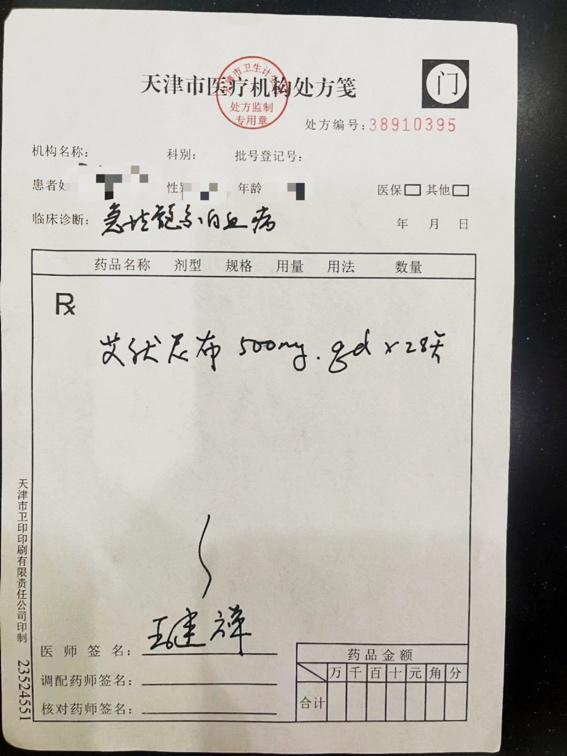 天津市医疗机构处方笺
门
处方监制
专用章
处方编号:38910395
机构名称: 科别: 批号登记号:
患者姓 性别 年龄 医保 其他
临床诊断: 急性髓系白血病 年 月 日
药品名称 剂型 规格 用量 用法 数量
Rx
艾伏尼布 500mg. qd x 28天
医师签名: 王建祥
调配药师签名:
核对药师签名:
药品金额
万 千 百 十 元 角 分
合计
天津市卫印印刷有限责任公司印制 23524551